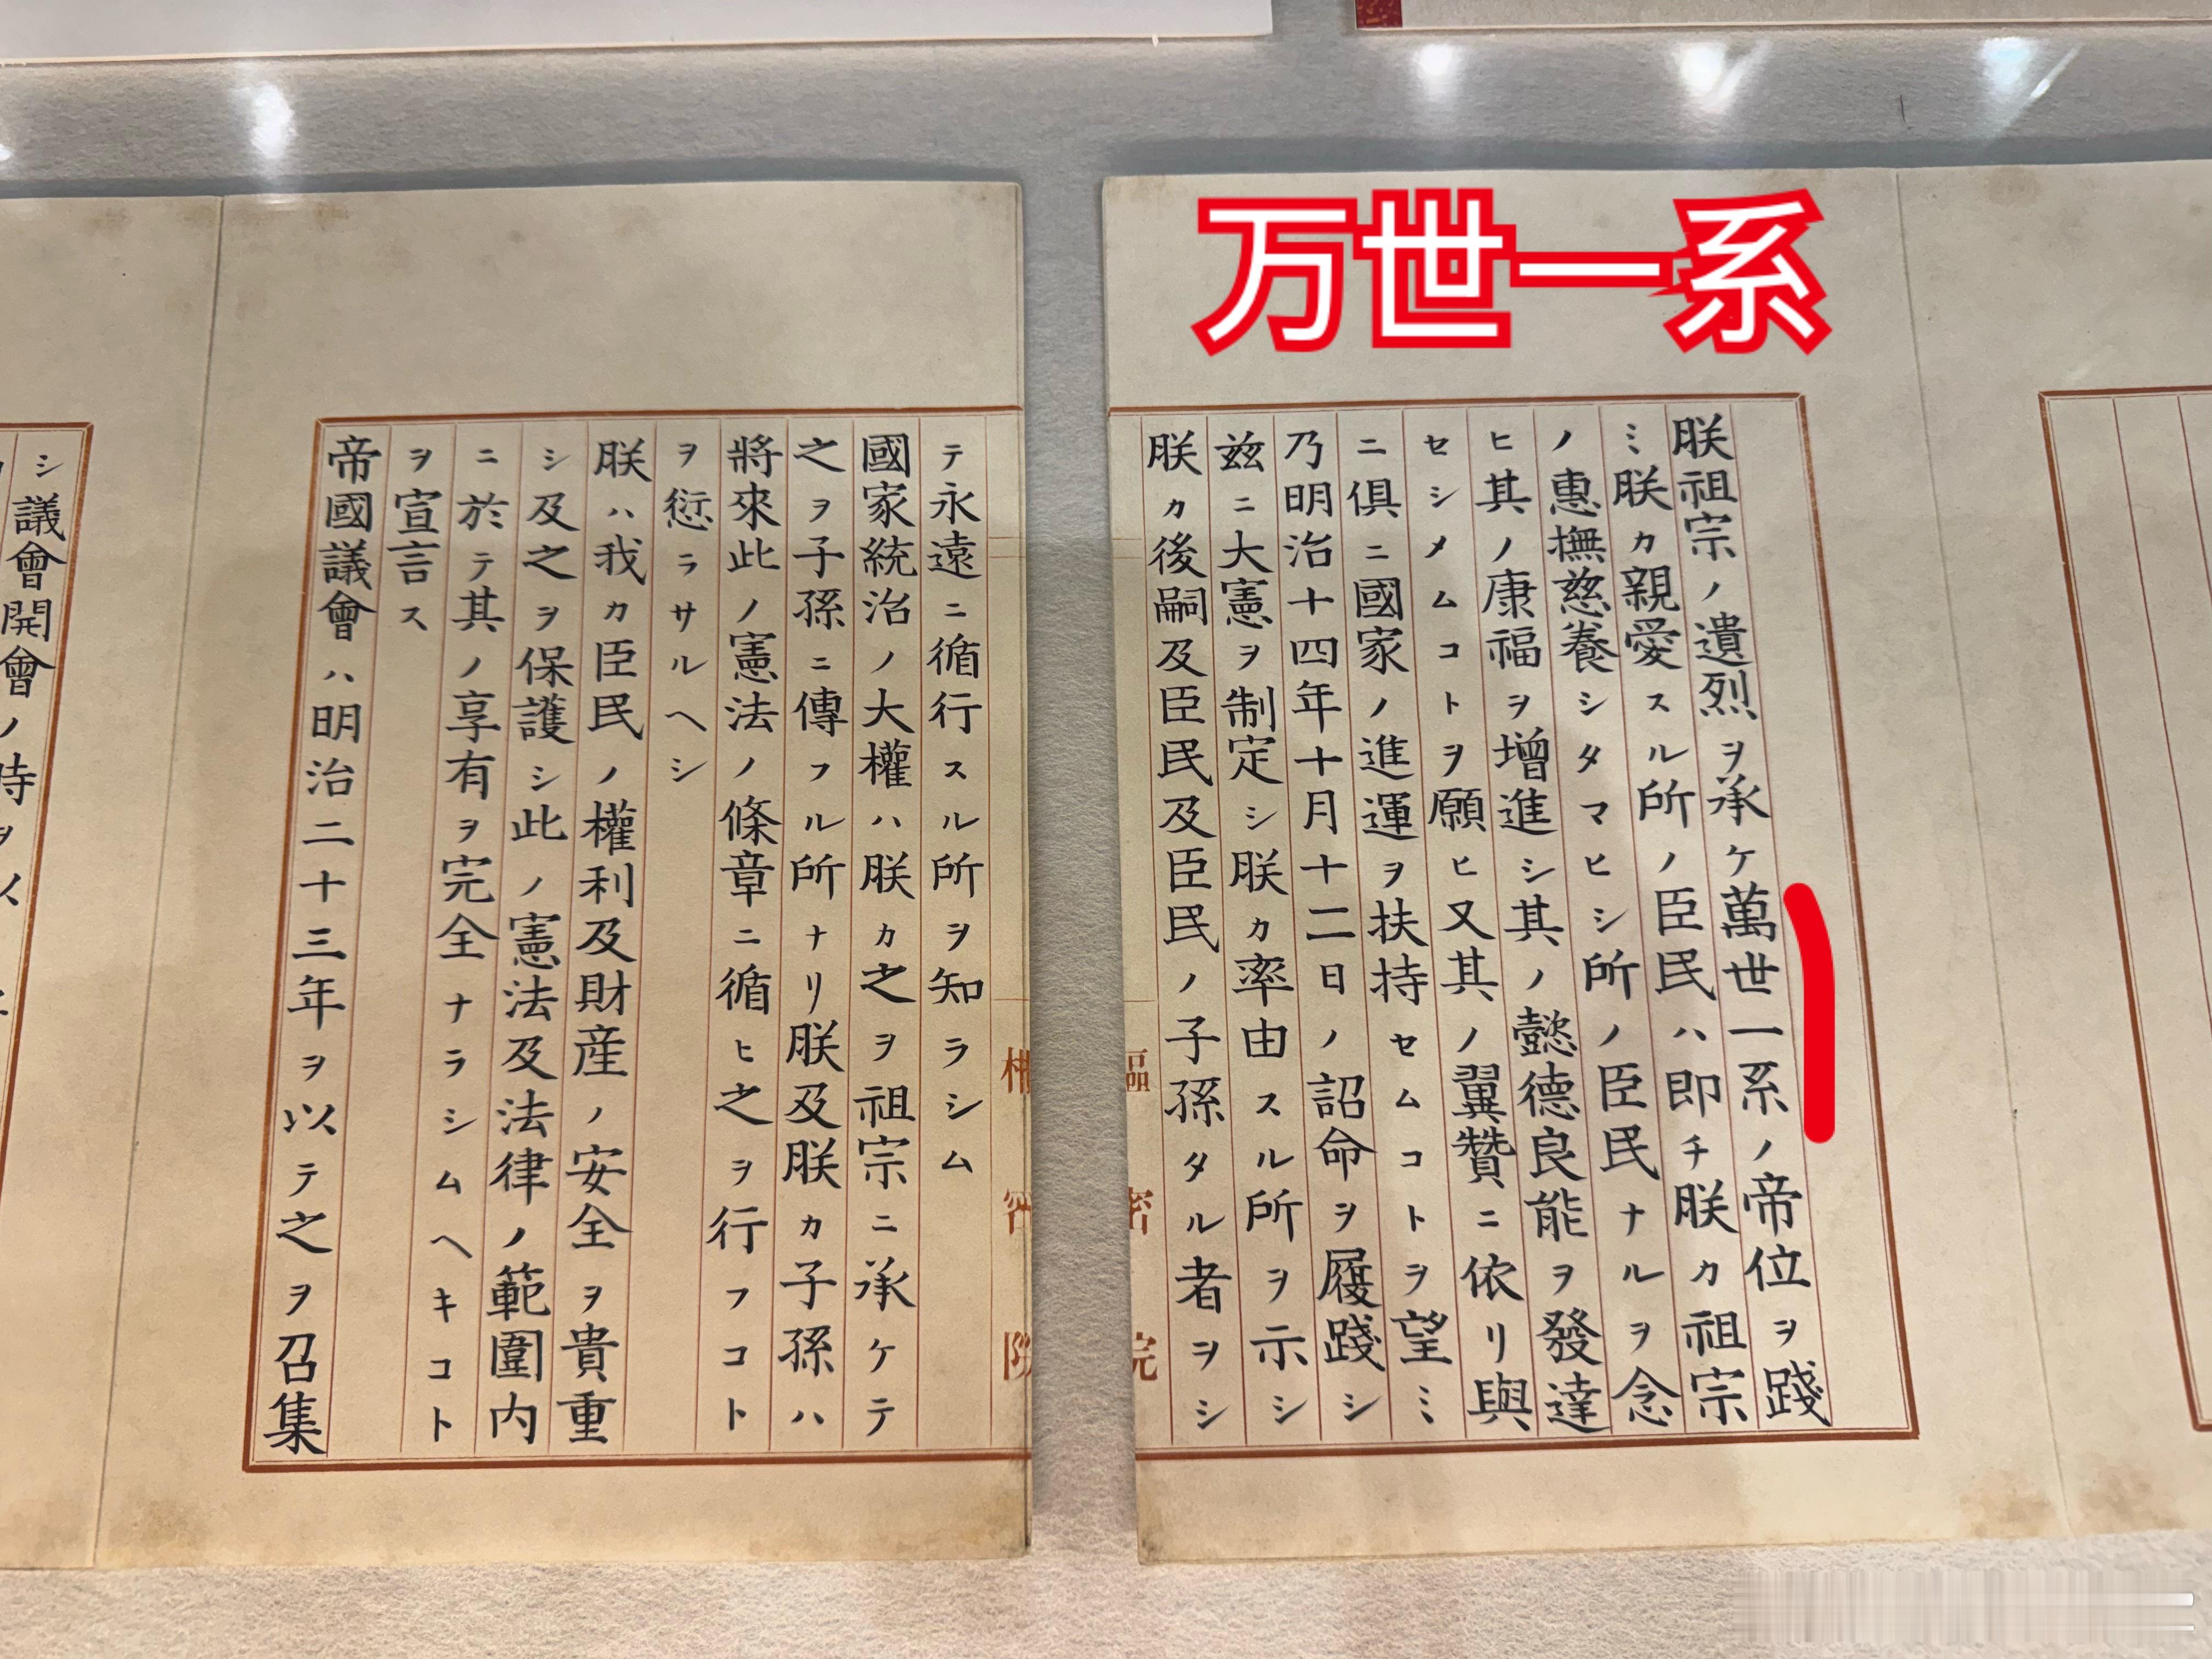 万世一系
朕祖宗ノ遺烈ヲ承ケ萬世一系ノ帝位ヲ踐
ミ朕カ親愛スル所ノ臣民ハ即チ朕カ祖宗
ノ惠撫慈養シタマヒシ所ノ臣民ナルヲ念
ヒ其ノ康福ヲ增進シ其ノ懿德良能ヲ發達
セシメムコトヲ願ヒ又其ノ翼贊ニ依リ與
ニ俱ニ國家ノ進運ヲ扶持セムコトヲ望ミ
乃明治十四年十月十二日ノ詔命ヲ履踐シ
茲ニ大憲ヲ制定シ朕カ率由スル所ヲ示シ
朕カ後嗣及臣民及臣民ノ子孫タル者ヲシ
樞密院
テ永遠ニ循行スル所ヲ知ラシム
國家統治ノ大權ハ朕カ之ヲ祖宗ニ承ケテ
之ヲ子孫ニ傳フル所ナリ朕及朕カ子孫ハ
將來此ノ憲法ノ條章ニ循ヒ之ヲ行フコト
ヲ愆ラサルヘシ
朕ハ我カ臣民ノ權利及財産ノ安全ヲ貴重
シ及之ヲ保護シ此ノ憲法及法律ノ範圍内
ニ於テ其ノ享有ヲ完全ナラシムヘキコト
ヲ宣言ス
帝國議會ハ明治二十三年ヲ以テ之ヲ召集
シ議會開會ノ時ヲ以